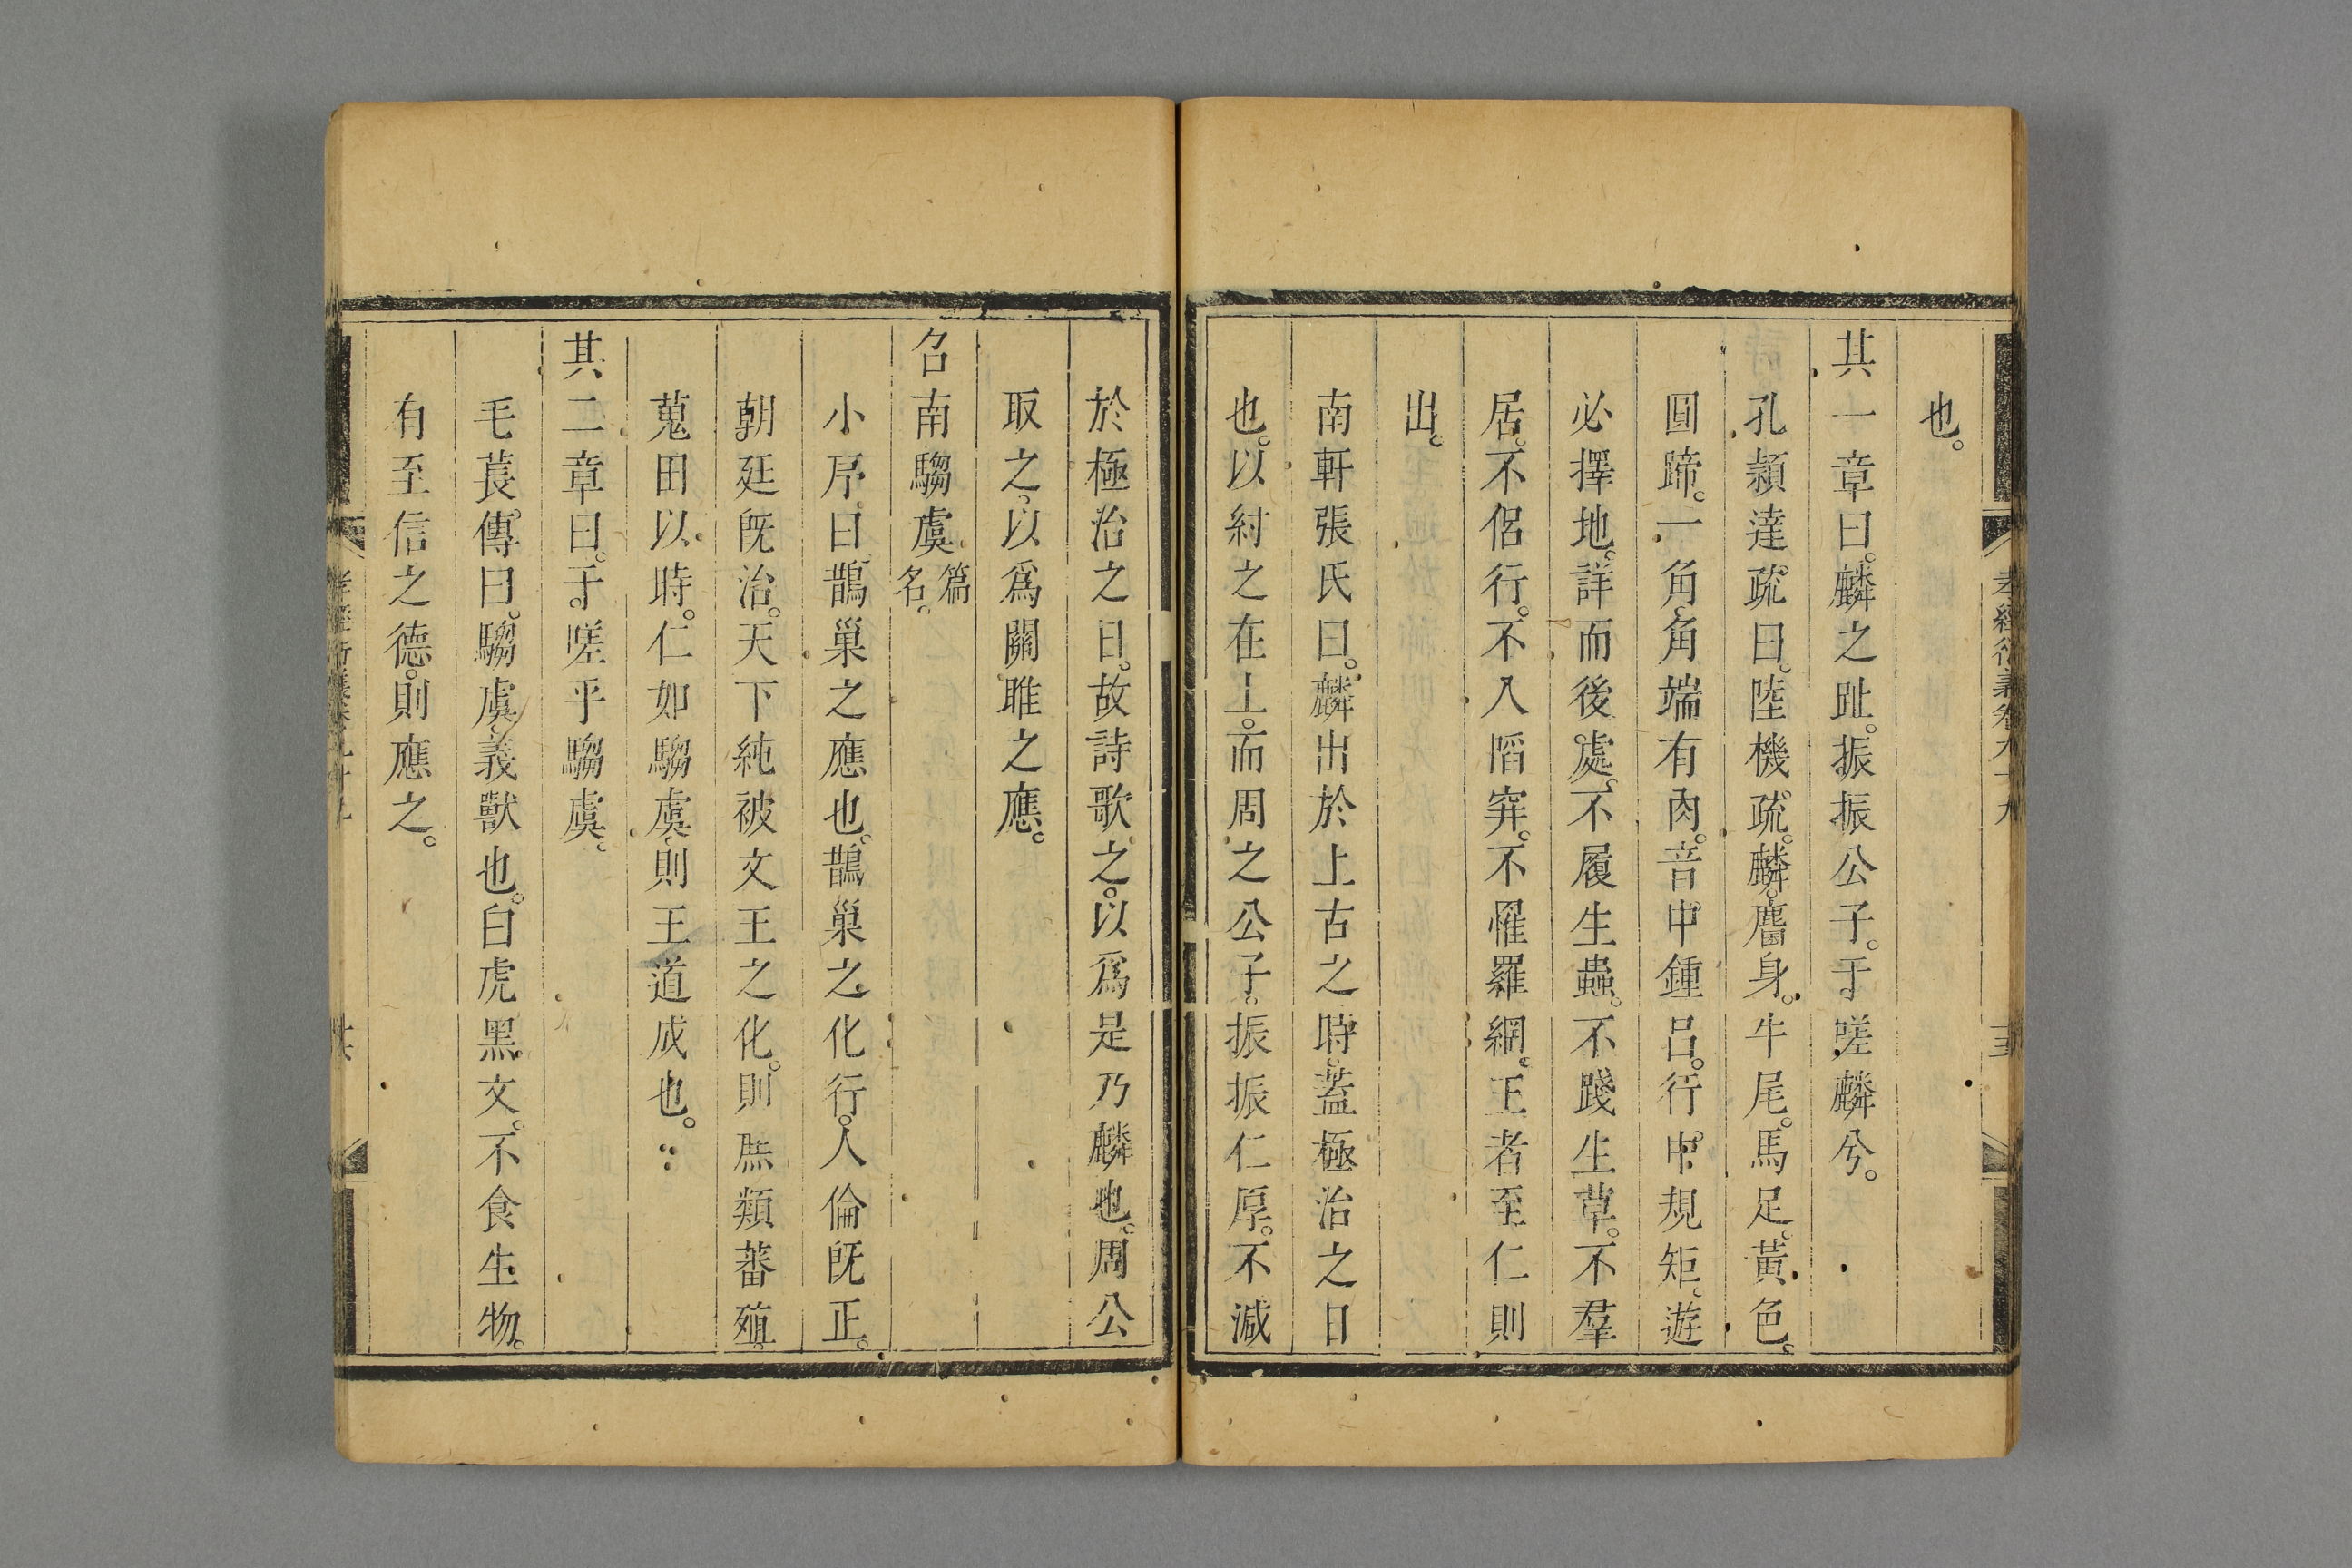 孝經衍義卷九十九
也。
其一章曰。麟之趾。振振公子。于嗟麟兮。
孔穎達疏曰。陸機疏。麟。麕身。牛尾。馬足。黃色。
圓蹄。一角。角端有肉。音中鍾呂。行中規矩。遊
必擇地。詳而後處。不履生蟲。不踐生草。不羣
居。不侶行。不入陷穽。不罹羅網。王者至仁則
出。
南軒張氏曰。麟出於上古之時。蓋極治之日
也。以紂之在上。而周之公子。振振仁厚。不減
於極治之日。故詩歌之。以爲是乃麟也。周公
取之。以爲關雎之應。
召南騶虞篇名。
小序曰。鵲巢之應也。鵲巢之化行。人倫旣正。
朝廷旣治。天下純被文王之化。則庶類蕃殖。
蒐田以時。仁如騶虞。則王道成也。
其二章曰。于嗟乎騶虞。
毛萇傳曰。騶虞。義獸也。白虎黑文。不食生物。
有至信之德。則應之。
孝經衍義卷九十九